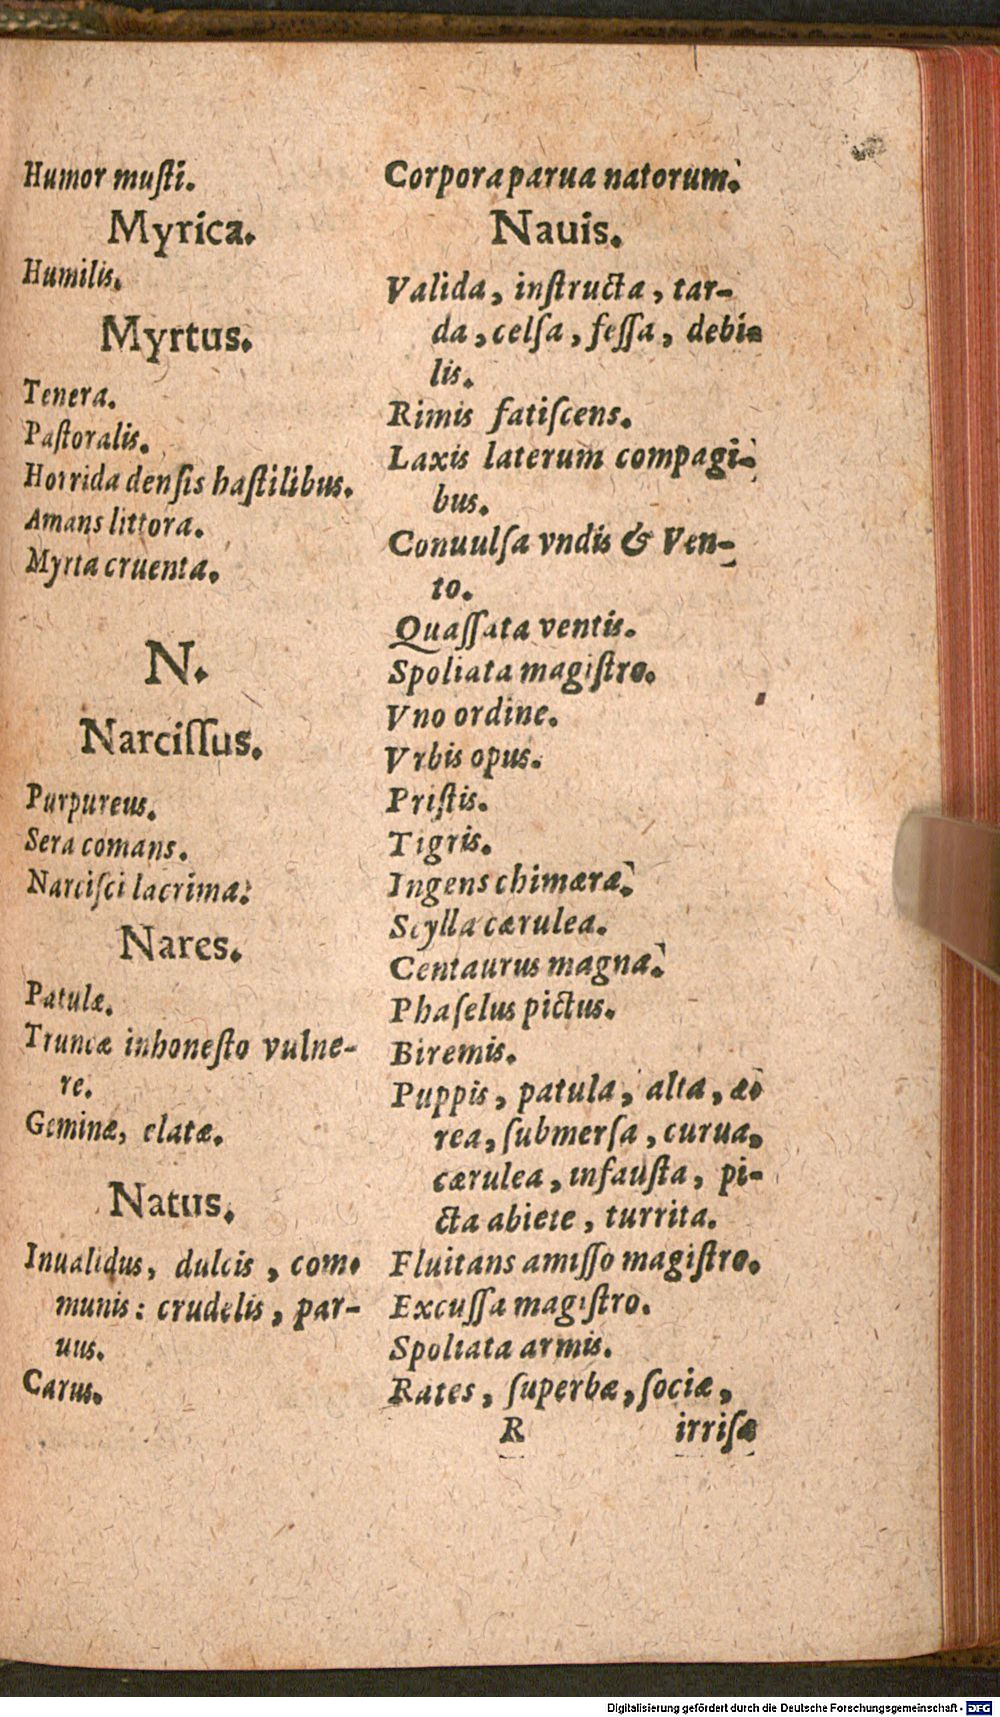 Humor muſti.
Myrica.
Humilis.
Myrtus.
Tenera.
Paſtoralis.
Horrida denſis haſtilibus.
Amans littora.
Myrta cruenta.
N.
Narciſſus.
Purpureus.
Sera comans.
Narciſci lacrima.
Nares.
Patulæ.
Truncæ inhoneſto vulne-
re.
Geminæ, elatæ.
Natus.
Inualidus, dulcis, com-
munis: crudelis, par-
uus.
Carus.
Corpora parua natorum.
Nauis.
Valida, inſtructa, tar-
da, celſa, feſſa, debi-
lis.
Rimis fatiſcens.
Laxis laterum compagi-
bus.
Conuulſa vndis & Ven-
to.
Quaſſata ventis.
Spoliata magiſtro.
Vno ordine.
Vrbis opus.
Priſtis.
Tigris.
Ingens chimæra.
Scylla cærulea.
Centaurus magna.
Phaſelus pictus.
Biremis.
Puppis, patula, alta, æ-
rea, ſubmerſa, curua,
cærulea, infauſta, pi-
cta abiete, turrita.
Fluitans amiſſo magiſtro.
Excuſſa magiſtro.
Spoliata armis.
Rates, ſuperbæ, ſociæ,
R irriſæ
Digitalisierung gefördert durch die Deutsche Forschungsgemeinschaft - DFG